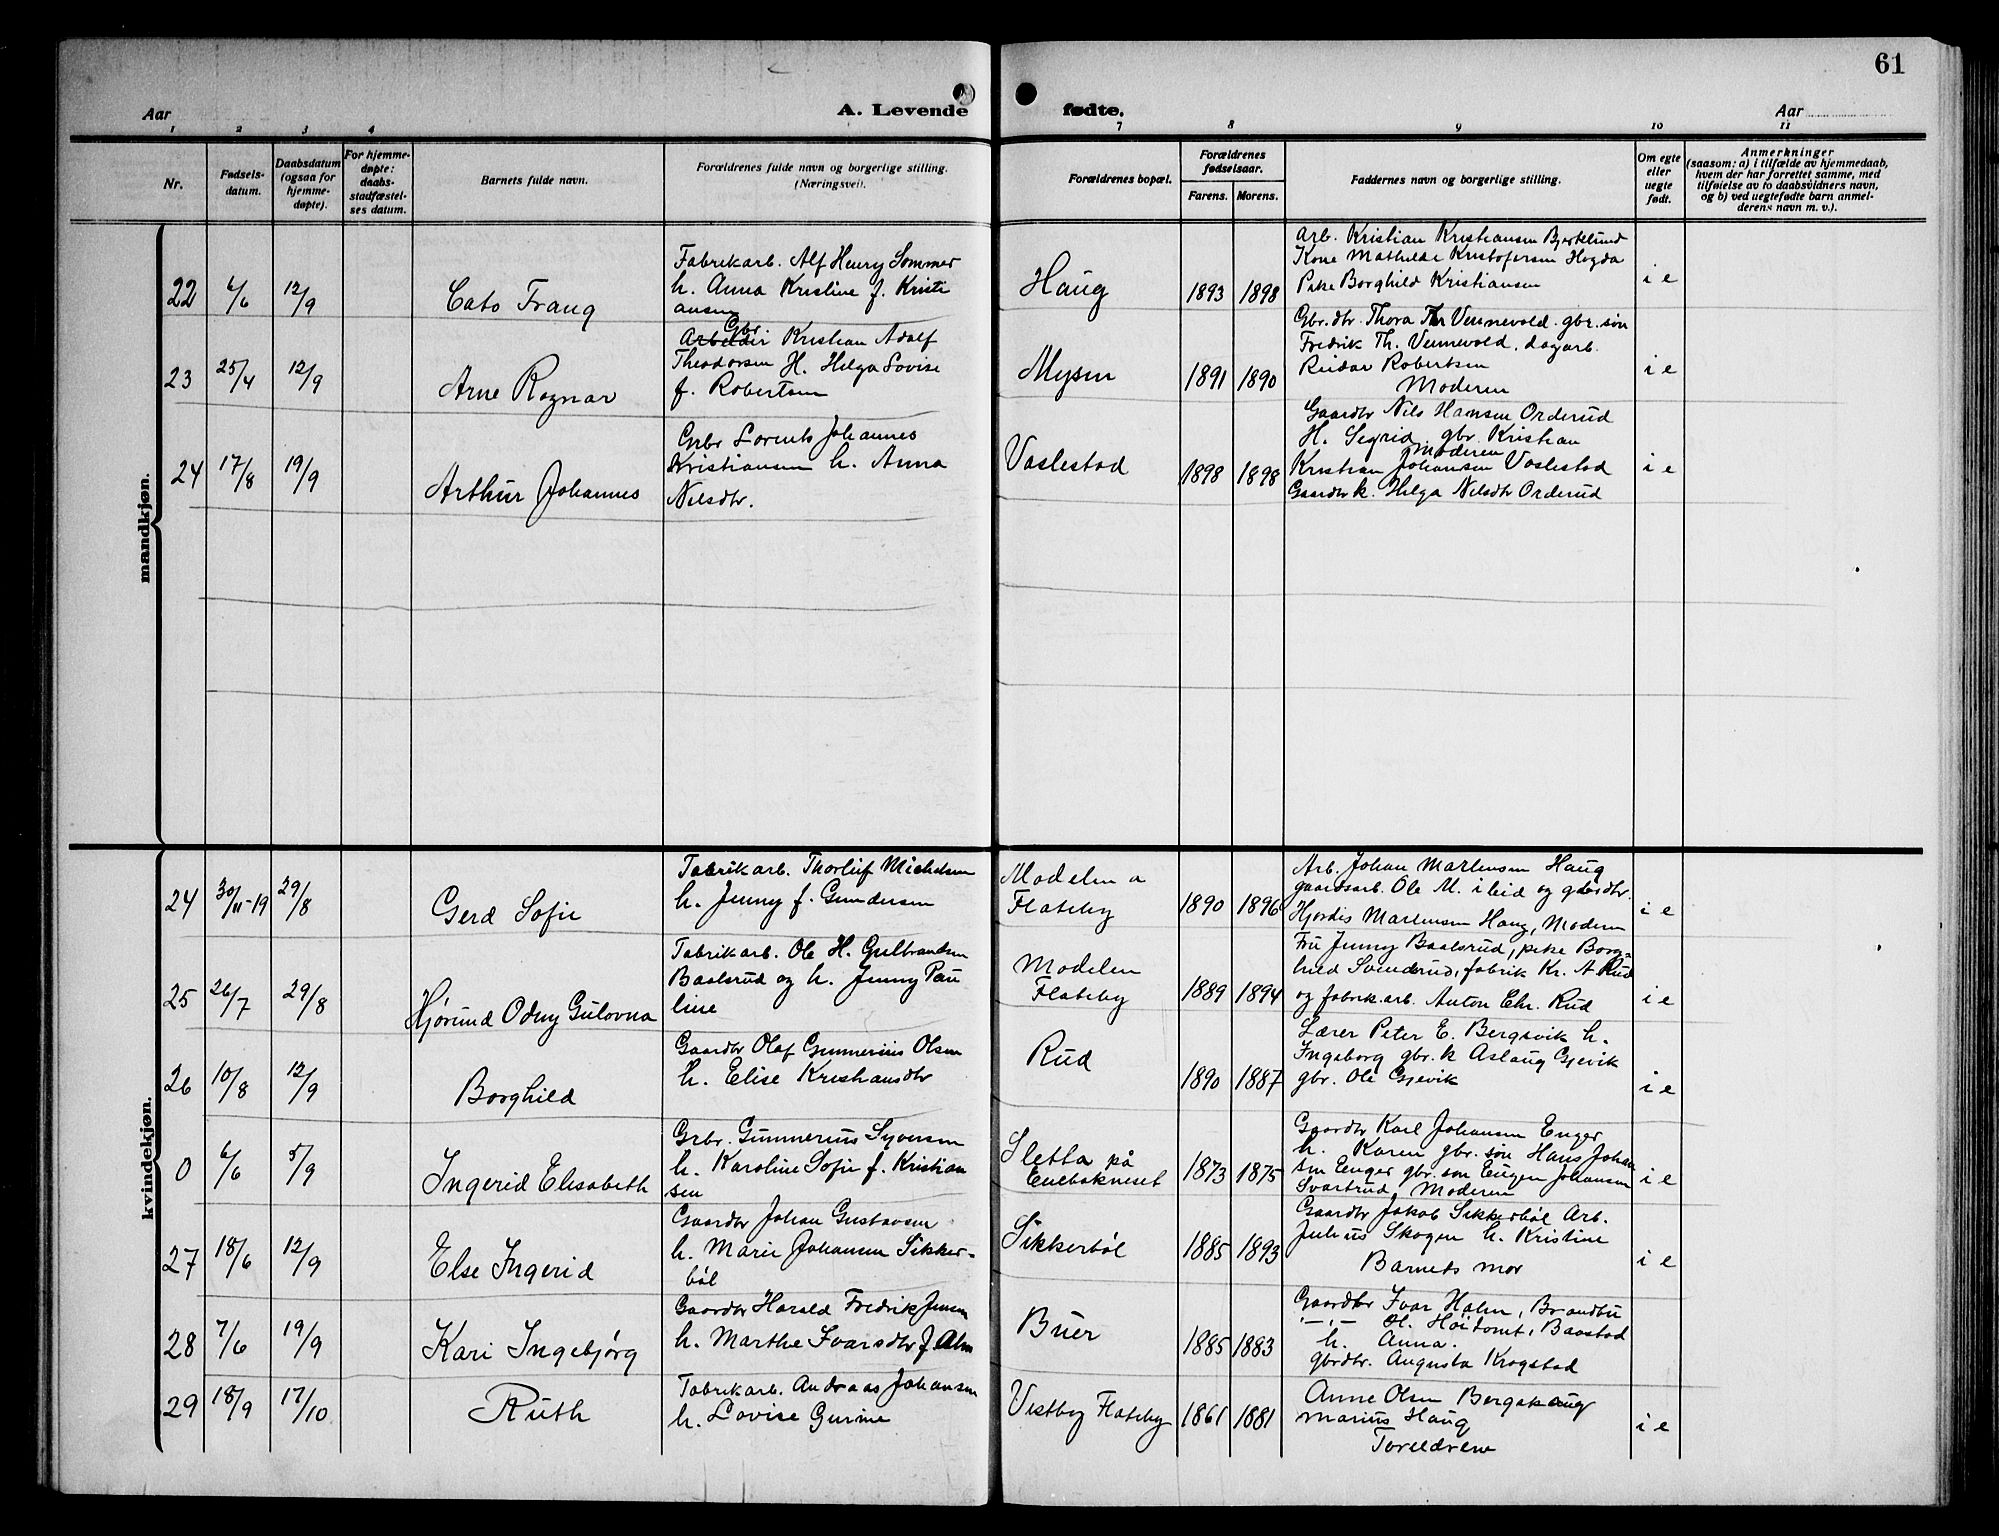 61
Aar
A. Levende
fødte.
Aar
1 2 3 4 7 8 9 10 11
Nr.
Fødsels-
datum.
Daabsdatum
(ogsaa for
hjemme-
døpte).
For hjemme-
døpte:
daabs-
stadfæstel-
ses datum.
Barnets fulde navn.
Forældrenes fulde navn og borgerlige stilling.
(Næringsvei).
Forældrenes bopæl.
Forældrenes
fødselsaar.
Farens. Morens.
Faddernes navn og borgerlige stilling.
Om egte
eller
uegte
født.
Anmerkninger
(saasom: a) i tilfælde av hjemmedaab,
hvem der har forrettet samme, med
tilføielse av to daabsvidners navn,
og b) ved uegtefødte barn anmel-
derens navn m. v.).
mandkjøn.
22
6/6
12/9
Cato Frang
Fabrikarb. Alf Henry Sommer
h. Anna Kristine f. Kristi
ansen
Haug
1893
1898
Arb. Kristian Kristiansen Bjerklund
Kone Mathilde Kristofersen Hogda
Pike Borghild Kristiansen
i e
23
25/4
12/9
Arne Ragnar
Gbr.
Arbeider Kristian Adolf
Theodorsen H. Helga Lovise
f. Robertsen
Mysen
1891
1890
Gbr.dtr. Thora Th Vennevold. gbr. søn
Fredrik Th. Vennevold, dagarb.
Reidar Robertsen
Moderen
i e
24
17/8
19/9
Arthur Johannes
Grbr Lorents Johannes
Kristiansen h. Anna
Nilsdtr.
Vaslestad
1898
1898
Gaardbr Nils Hansen Orderud
H. Segrid, gbr. Kristian
Moderen
Kristian Johansen Vaslestad
Gaardbr k. Helga Nilsdtr Orderud
i e
kvindekjøn.
24
30/11-19
29/8
Gerd Sofie
Fabrikarb. Thorleif Michelsen
h. Jenny f. Gundersen
Modelen a
Flateby
1890
1896
Arb. Johan Martensen Haug
gaardsarb. Ole M. ileid og gbrdtr.
Hjordis Martensen Haug, Moderen
i e
25
26/7
29/8
Hjørund Odny Gulovna
Fabrikarb. Ole H. Gulbrandsen
Baalsrud og h. Jenny Pau
line
Modelen
Flateby
1889
1894
Fru Jenny Baalsrud, pike Borg-
hild Svenderud, fabrik Kr. A Rud
og fabrik.arb. Anton Chr. Rud
i e
26
10/8
12/9
Borghild
Gaardbr Olaf Gunnerius Olsen
h. Elise Kristiansdtr
Rud
1890
1887
Lærer Peter E. Bergsvik h.
Ingeborg gbr. k Aslaug Gjevik
gbr. Ole Gjevik
i e
0
6/6
5/9
Ingerid Elisabeth
Grbr. Gunnerius Syversen
h. Karoline Sofie f. Kristian
sen
Sletta på
Enebakneset
1873
1875
Gaardbr Karl Johansen Enger
h. Karen gbr. søn Hans Johan
sen Enger gbr. søn Eugen Johansen
Svartrud, Moderen
i e
27
18/6
12/9
Else Ingerid
Gaardbr Johan Gustavsen
h. Marie Johansen Sikker-
bøl
Sikkerbøl
1885
1893
Gaardbr Jakob Sikkerbøl Arb.
Julius Skogen h. Kristine
Barnets mor
i e
28
7/6
19/9
Kari Ingebjørg
Gaardbr Harald Fredrik Jensen
h. Marthe Ivarsdtr f Alm
Buer
1885
1883
Gaardbr Ivar Holm, Brandbu
-,,- O. Høitomt, Baastad
h. Anna.
gbrdtr. Augusta Krogstad
29
18/9
17/10
Ruth
Fabrikarb. Andreas Johansen
h. Lovise Gurine
Vestby Flateby
1861
1881
Anne Olsen Bergskaug
Marius Haug
Foreldrene
i e